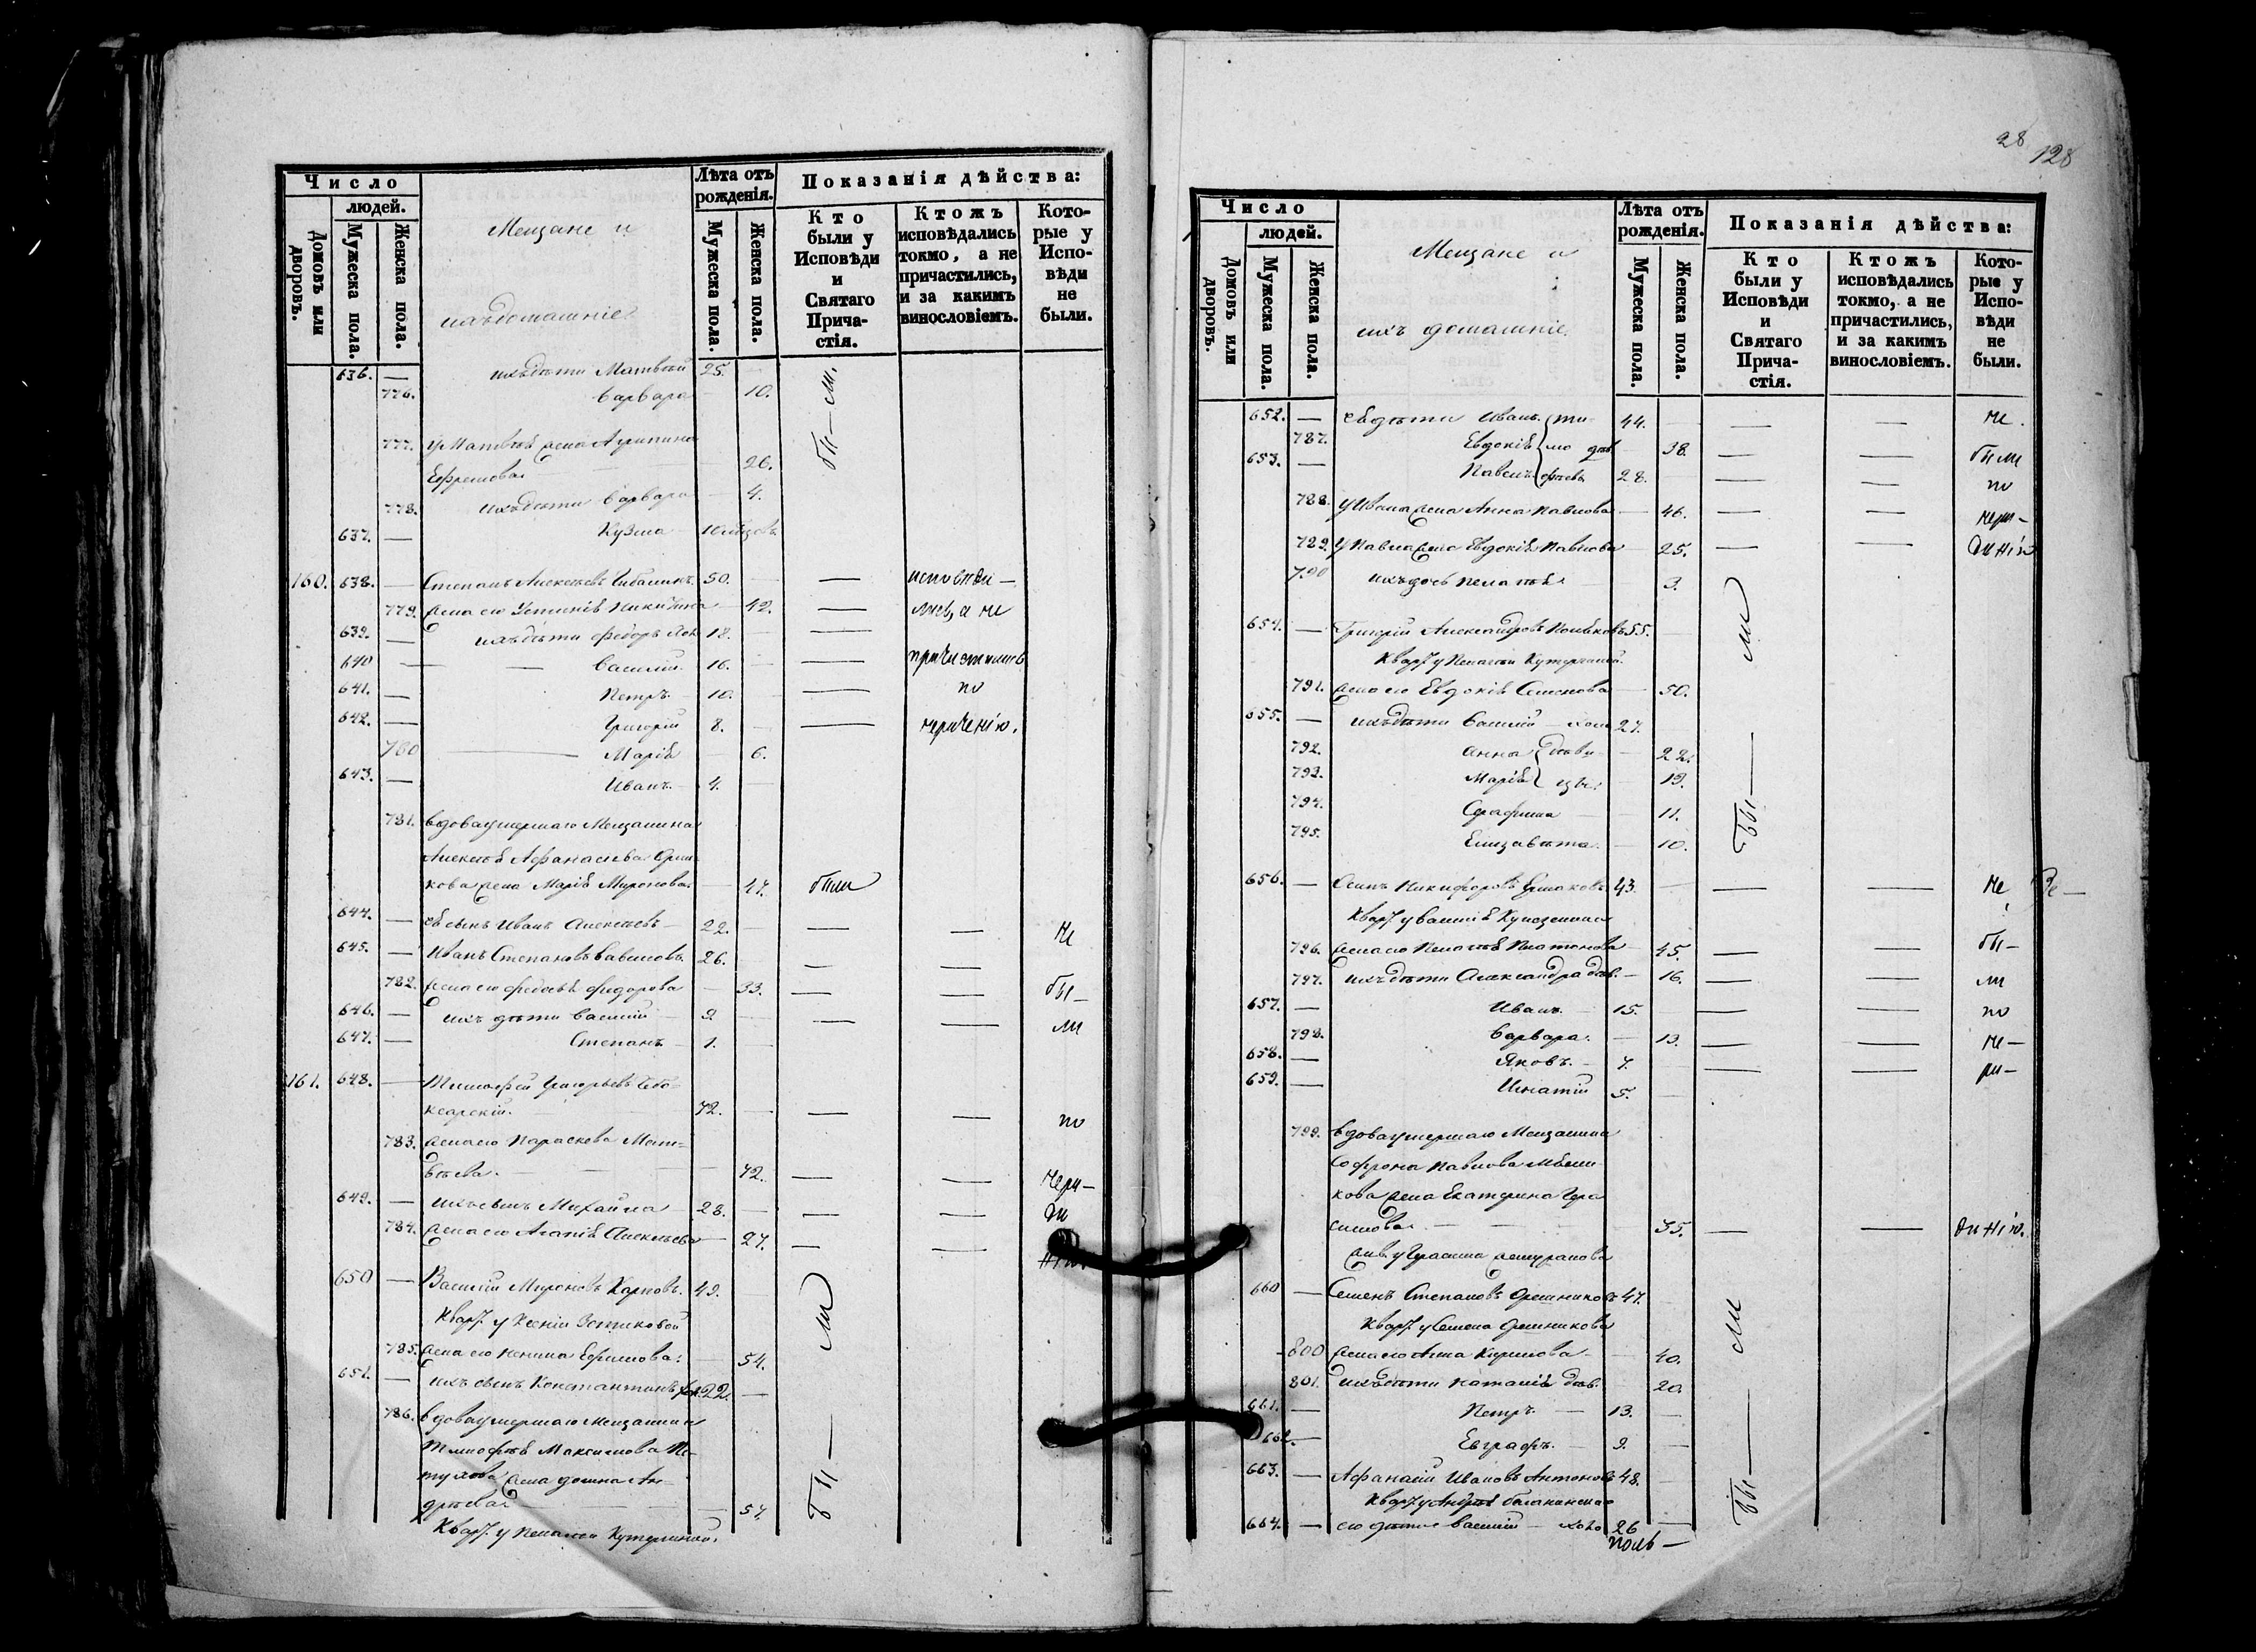 Число
людей.
Домовъ или дворовъ.
Мужеска пола.
Женска пола.
Мещане и
ихъ домашніе
Лѣта отъ рожденія.
Мужеска пола.
Женска пола.
Показанія дѣйства:
Кто были у Исповѣди и Святаго Причастія.
Ктожъ исповѣдались токмо, а не причастились, и за какимъ винословіемъ.
Которые у Исповѣди не были.
636. — ихъ дѣти Матвѣй 25. —
776. Варвара — 10.
бы — ли.
777. у Матвѣя жена
Ефремова 26.
778. ихъ дѣти Варвара — 4.
637. — Кузма
160. 638. — Степанъ Алексѣевъ 50. — — исповѣди —
779. жена его Устинія Никитина — 42. — лись, а не
639. — ихъ дѣти Федоръ 18. — —
640 — — Василій 16. — — причастились
641. — Петръ 10. — — по
642. — Григорій 8. — — нераченію.
780 — Марія — 6.
643. — Иванъ 4. —
781. вдова умершаго Мещанина
Алексѣя Афанасьева
кова жена Марія Миронова — 47. были
644. — ея сынъ Иванъ Алексѣевъ 22. — — — не
645. — Иванъ Степановъ Вавиловъ 26. — —
782. жена его Федосья Федорова — 33. — — бы —
646. — ихъ дѣти Василій 9 — — — ли
647. — Степанъ 1. —
161. 648. — Тимофей Григорьевъ Чебо-
ксарскій. 72. — — — по
783. жена его Параскева Мат-
вѣева. — 72. — — нера —
649. — ихъ сынъ Михайла 28. — — —
784. жена его Агапія Алексѣева — 27. — —
650 — Василій Мироновъ Карповъ. 49. —
Кварт. у Ксеніи
785. жена его Ефимова. — 54.
651. — ихъ сынъ Константинъ 22. —
786. вдова умершаго Мещанина
Тимофѣя Максимова Пе-
тухова жена Домна Ан-
дрѣева — 57.
Кварт. у Пелагеи
Бы — ли
28
128
Число
людей.
Домовъ или дворовъ.
Мужеска пола.
Женска пола.
Мещане и
ихъ домашніе
Лѣта отъ рожденія.
Мужеска пола.
Женска пола.
Показанія дѣйства:
Кто были у Исповѣди и Святаго Причастія.
Ктожъ исповѣдались токмо, а не причастились, и за какимъ винословіемъ.
Которые у Исповѣди не были.
652. — ея дѣти Иванъ 44. — — — не
787. Евдокія — 38. — — были
653. — Павелъ 28. — — — по
788. у Ивана жена Анна Павлова — 46. — — нера —
789. у Павла жена Евдокія Павлова — 25. — —
790 ихъ дочь Пелагея — 3.
654. — Григорій Александровъ 55. —
Кварт. у Пелагеи
791. жена его Евдокія Семенова — 50.
655. — ихъ дѣти Василій — хол 27. —
792. Анна — 22.
793. Марія — 19.
794. Серафима — 11.
795. Елизавета — 10.
Бы — ли
656. — Осипъ Никифоровъ Ермаковъ 43. — — — не
Кварт. у Василія
796. жена его Пелагея Платонова — 45. — — бы —
797. ихъ дѣти Александра дѣв. — 16. — — ли
657. — Иванъ 15. — — — по
798. Варвара. — 13. — — не —
658. — Яковъ. 7. — — — ра —
659. — Игнатій 5. —
799. вдова умершаго Мещанина
Софрона Павлова
кова жена Екатерина Гера
симова — 35. — —
660 — Семенъ Степановъ Орешниковъ 47. —
Кварт. у Семена Орешникова
800 жена его Анна Кирилова — 40.
801. ихъ дѣти Наталія дѣв. — 20.
661. — Петръ — 13. —
662. — Евграфъ. — 9. —
663. — Афанасій Ивановъ Антоновъ 48. —
Кварт. у Андрея
664. — его дѣти Василій — холо 26 —
Бы — ли